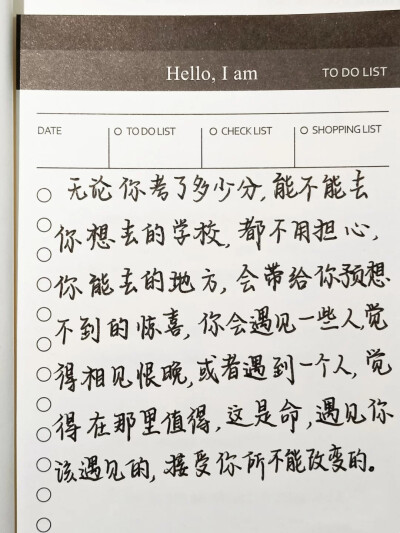 Hello, I am
TO DO LIST
DATE
TO DO LIST
CHECK LIST
SHOPPING LIST
无论你考了多少分,能不能去
你想去的学校,都不用担心,
你能去的地方,会带给你预想
不到的惊喜,你会遇见一些人,觉
得相见恨晚,或者遇到一个人,觉
得在那里值得,这是命,遇见你
该遇见的,接受你所不能改变的。